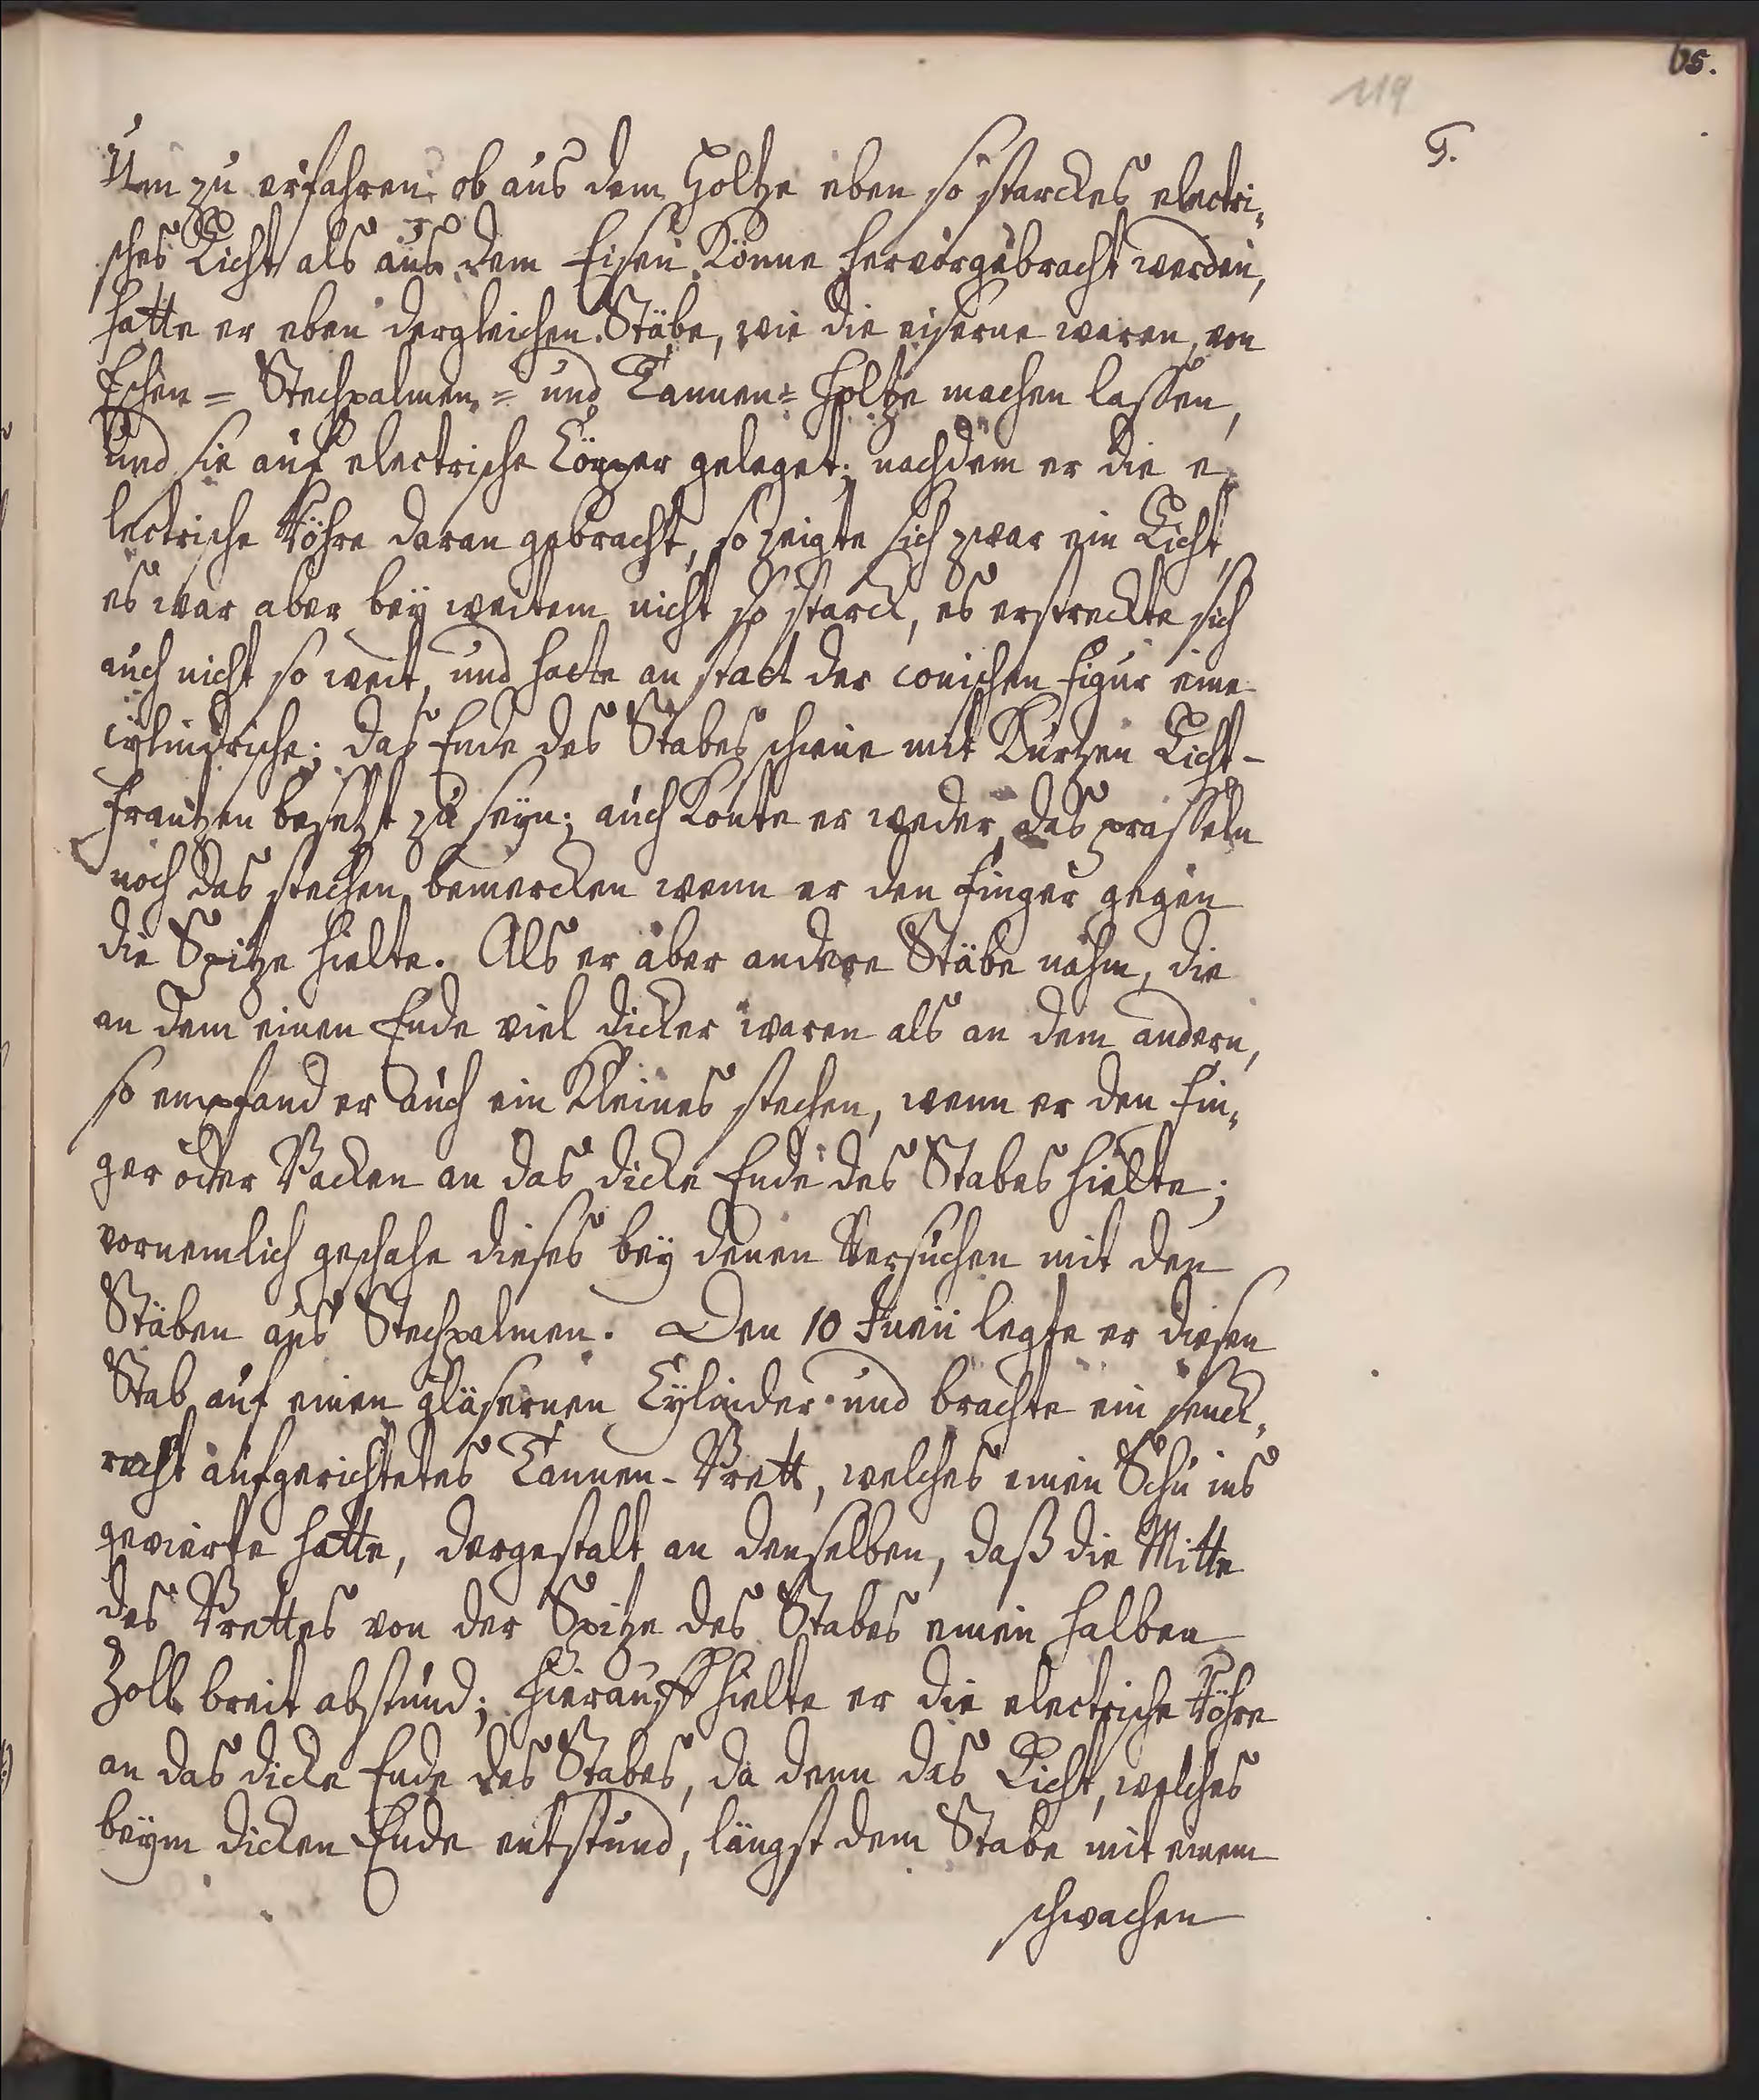 65.
119
G.
Um zu erfahren ob aus dem Holtze eben so starckes electri„
sches Licht als aus dem Eisen könne hervorgebracht werden,
hatte er eben dergleichen Stäbe, wie die eiserne waren, von
Eschen= Stechpalmen= und Tannen= Holtze machen lassen,
und sie auf electrische Cörper geleget; nachdem er die e„
lectrische Röhre daran gebracht, so zeigte sich zwar ein Licht,
es war aber bey weitem nicht so starck, es erstreckte sich
auch nicht so weit, und hatte an statt der conischen Figur eine
cylindrische; das Ende des Stabes schiene mit kurtzen Licht-
Frantzen besetzt zu seyn; auch konte er weder das prasseln
noch das stechen bemercken wenn er den Finger gegen
die Spitze hielte. Als er aber andere Stäbe nahm, die
an dem einen Ende viel dicker waren als an dem andern,
so empfand er auch ein kleines stechen, wenn er den Fin„
ger oder Backen an das dicke Ende des Stabes hielte;
vornemlich geschahe dieses bey denen Versuchen mit den
Stäben aus Stechpalmen. Den 10 Junii legte er diesen
Stab auf einen gläsernen Cylinder und brachte ein senck„
recht aufgerichtetes Tannen-Brett, welches einen Schu ins
gevierte hatte, dergestalt an denselben, daß die Mitte
des Brettes von der Spitze des Stabes einen halben
Zoll breit abstund; Hierauff hielte er die electrische Röhre
an das dicke Ende des Stabes, da denn das Licht, welches
beym dicken Ende entstund, längst dem Stabe mit einem
schwachen